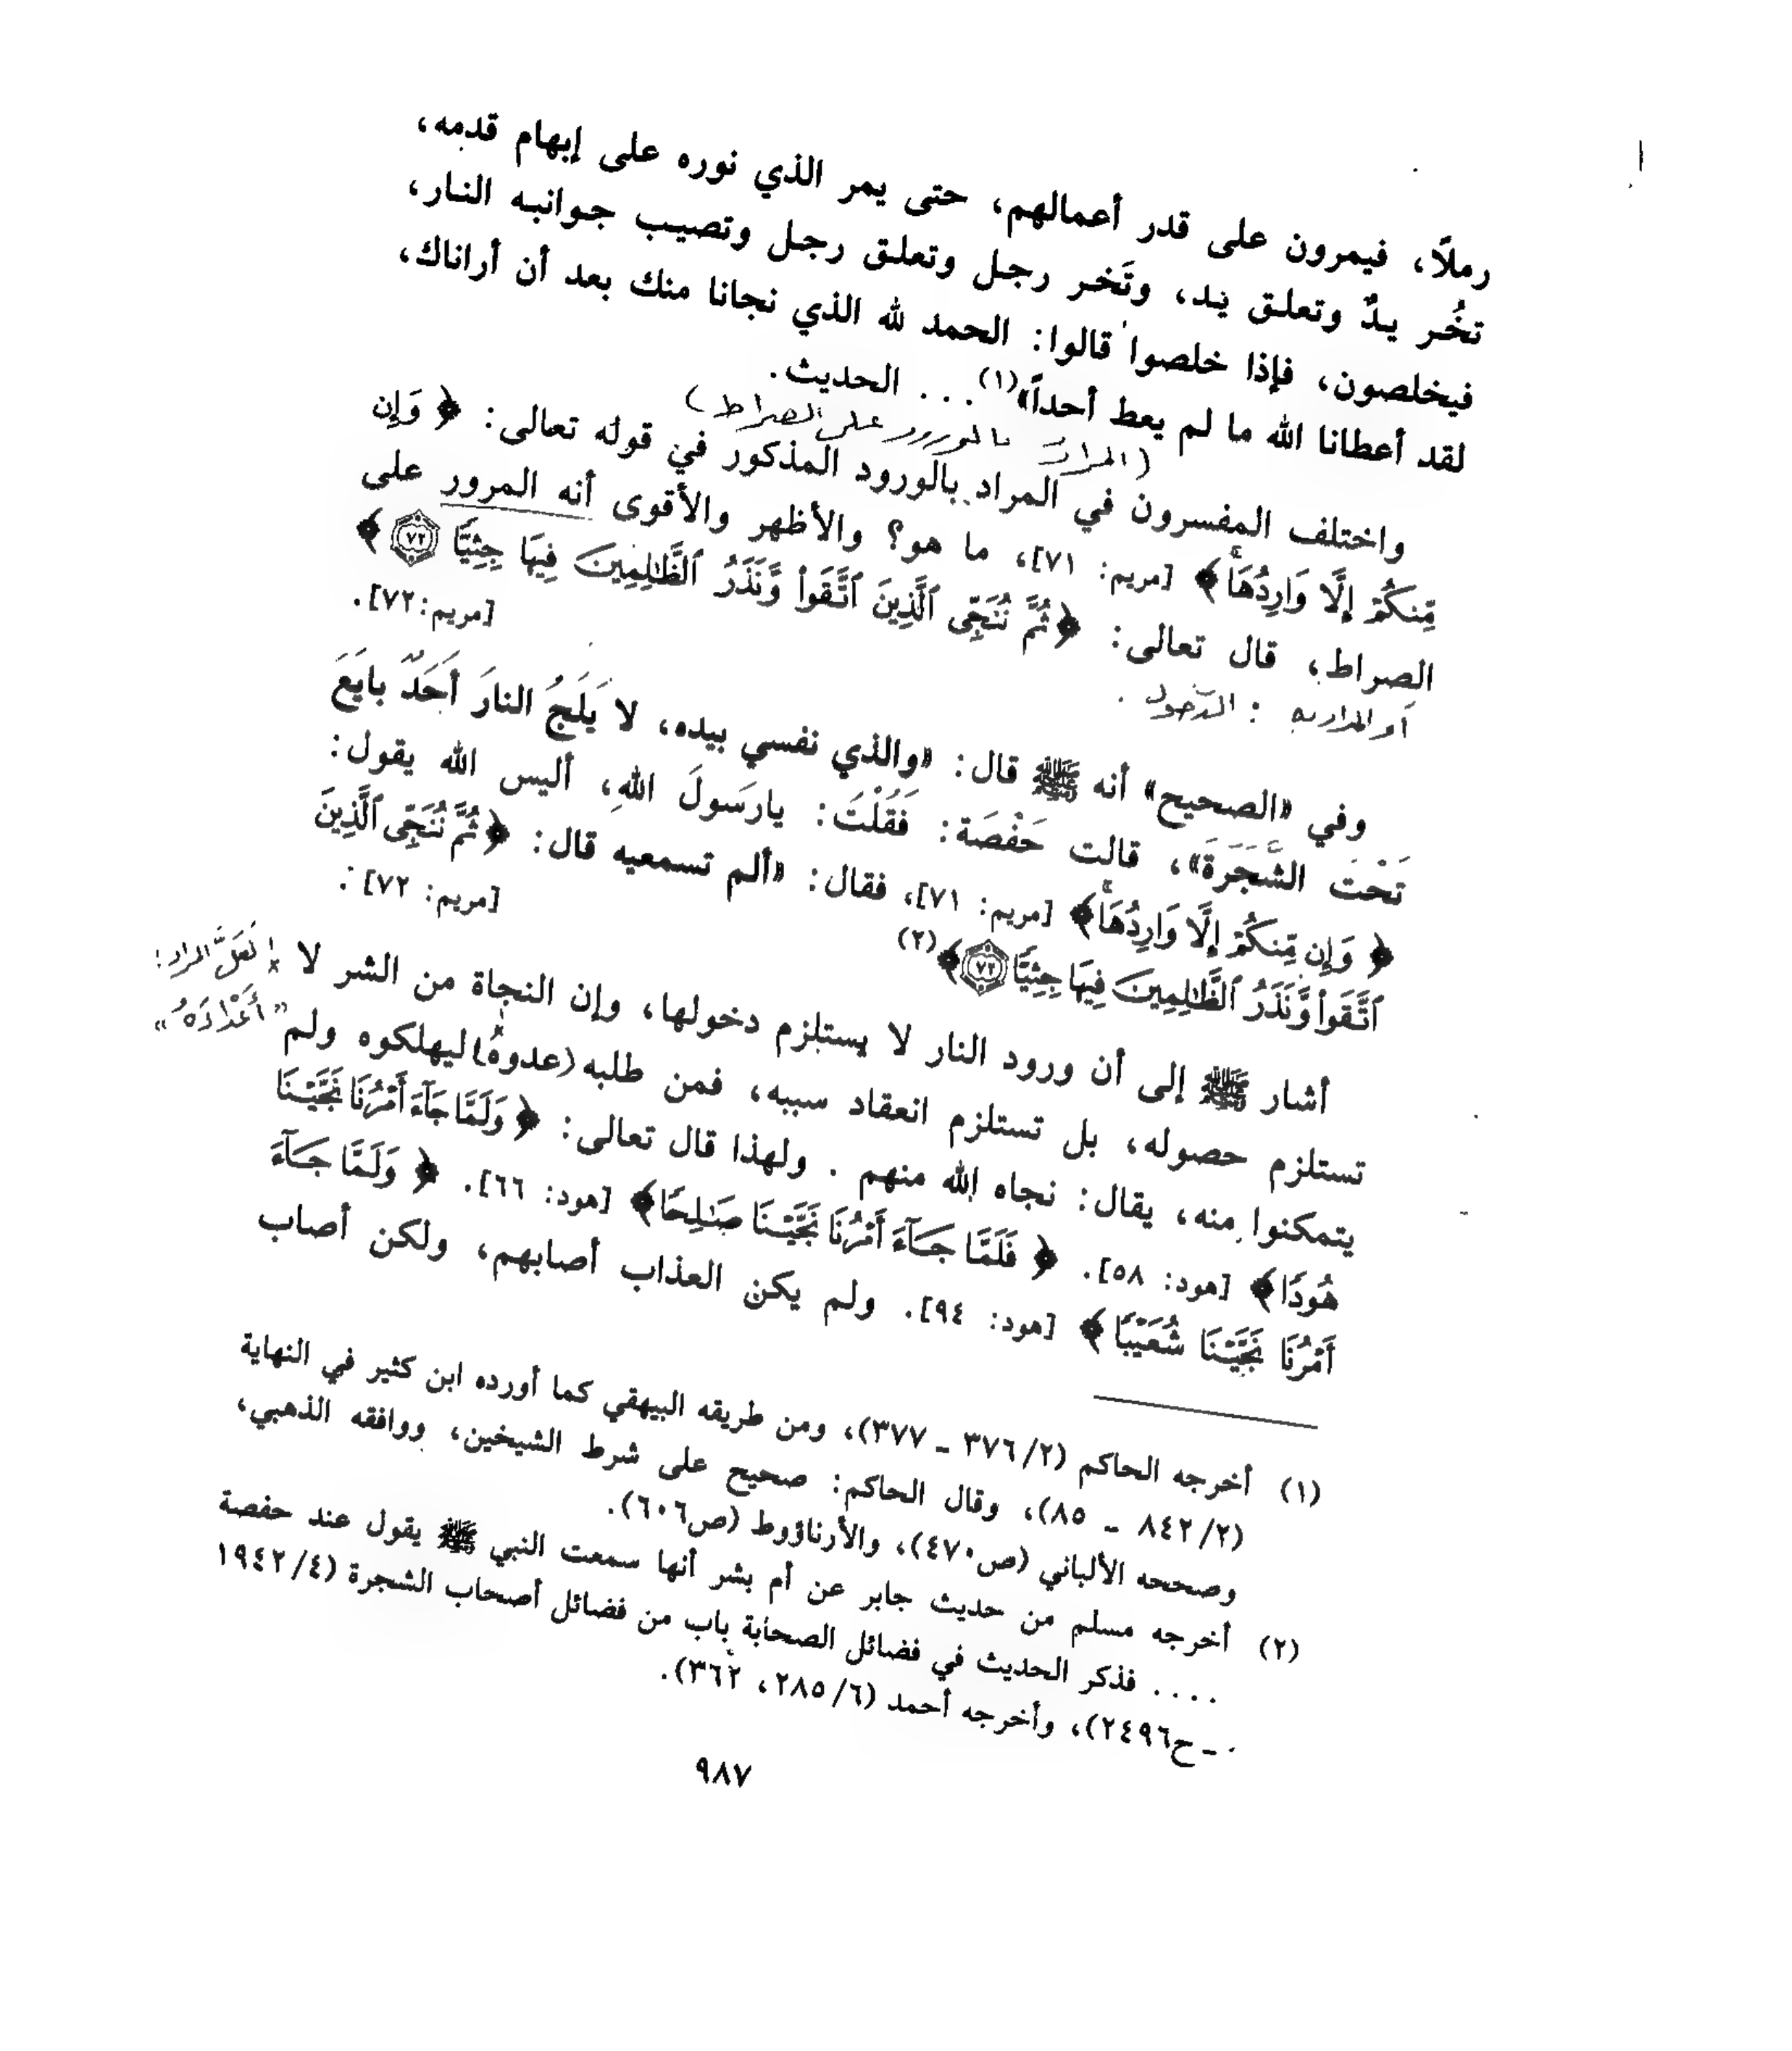 رملاً، فيمرون على قدر أعمالهم، حتى يمر الذي نوره على إبهام قدمه،
تخُر يدٌ وتعلق يد، وتَخر رجل وتعلق رجل وتصيب جوانبه النار،
فيخلصون، فإذا خلصوا قالوا: الحمد لله الذي نجانا منك بعد أن أراناك،
لقد أعطانا الله ما لم يعط أحداً»(١). . . الحديث.
(المراد بالورود على الصراط)
واختلف المفسرون في المراد بالورود المذكور في قوله تعالى: ﴿ وَإِن
مِّنكُمْ إِلَّا وَارِدُهَا ﴾ [مريم: ٧١]، ما هو؟ والأظهر والأقوى أنه المرور على
الصراط، قال تعالى: ﴿ ثُمَّ نُنَجِّى ٱلَّذِينَ ٱتَّقَوا۟ وَّنَذَرُ ٱلظَّٰلِمِينَ فِيهَا جِثِيًّا ٧٢ ﴾
[مريم:٧٢].
أو المراد به : الدخول .
وفي «الصحيح» أنه ﷺ قال: «والذي نفسي بيده، لا يَلَجُ النارَ أَحَدٌ بايَعَ
تَحْتَ الشَّجَرَةَ»، قالت حَفْصَة: فَقُلْتُ: يارَسولَ اللهِ، أليس الله يقول:
﴿ وَإِن مِّنكُمْ إِلَّا وَارِدُهَا ﴾ [مريم: ٧١]، فقال: «ألم تسمعيه قال: ﴿ ثُمَّ نُنَجِّى ٱلَّذِينَ
ٱتَّقَوا۟ وَّنَذَرُ ٱلظَّٰلِمِينَ فِيهَا جِثِيًّا ٧٢ ﴾(٢)
[مريم: ٧٢].
أشار ﷺ إلى أن ورود النار لا يستلزم دخولها، وإن النجاة من الشر لا
تستلزم حصوله، بل تستلزم انعقاد سببه، فمن طلبه (عدوه) ليهلكوه ولم
لَعَلَّ المراد:
«أَعْدَاؤُهُ»
يتمكنوا منه، يقال: نجاه الله منهم . ولهذا قال تعالى: ﴿ وَلَمَّا جَآءَ أَمْرُنَا نَجَّيْنَا
هُودًا ﴾ [هود: ٥٨]. ﴿ فَلَمَّا جَآءَ أَمْرُنَا نَجَّيْنَا صَٰلِحًا ﴾ [هود: ٦٦]. ﴿ وَلَمَّا جَآءَ
أَمْرُنَا نَجَّيْنَا شُعَيْبًا ﴾ [هود: ٩٤]. ولم يكن العذاب أصابهم، ولكن أصاب
(١) أخرجه الحاكم (٢/ ٣٧٦ ـ ٣٧٧)، ومن طريقه البيهقي كما أورده ابن كثير في النهاية
(٢/ ٨٤٢ ـ ٨٥)، وقال الحاكم: صحيح على شرط الشيخين، ووافقه الذهبي،
وصححه الألباني (ص٤٧٠)، والأرناؤوط (ص٦٠٦).
(٢) أخرجه مسلم من حديث جابر عن أم بشر أنها سمعت النبي ﷺ يقول عند حفصة
. . . . فذكر الحديث في فضائل الصحابة باب من فضائل أصحاب الشجرة (٤/ ١٩٤٢
ـ ح٢٤٩٦)، وأخرجه أحمد (٦/ ٢٨٥، ٣٦٢).
٩٨٧